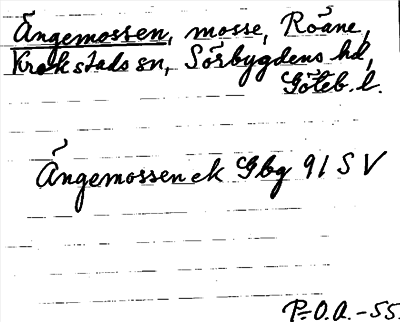 Ängemossen, mosse, Röane,
Krokstads sn, Sörbygdens hd,
Göteb. l.
Ängemossen ek Gbg 91 SV
P.O.A. -55.